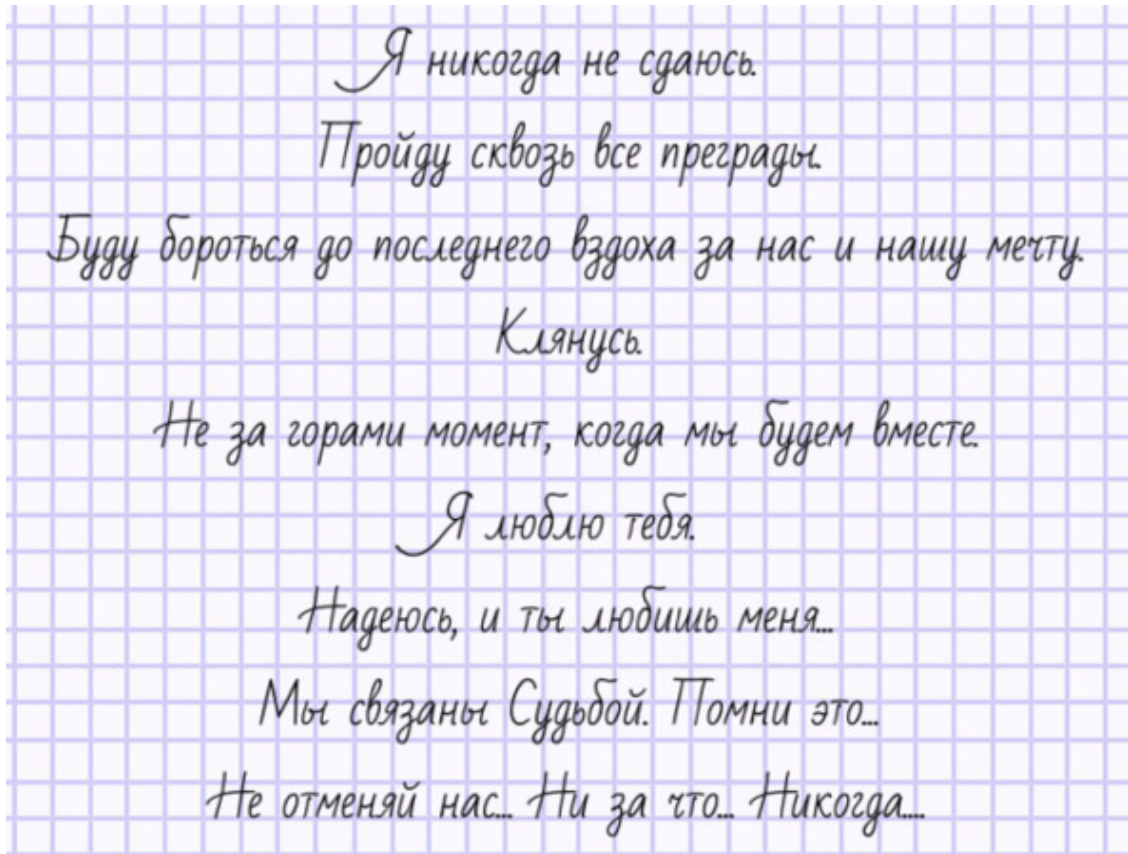 Я никогда не сдаюсь.
Пройду сквозь все преграды.
Буду бороться до последнего вздоха за нас и нашу мечту.
Клянусь.
Не за горами момент, когда мы будем вместе.
Я люблю тебя.
Надеюсь, и ты любишь меня...
Мы связаны Судьбой. Помни это...
Не отменяй нас... Ни за что... Никогда....